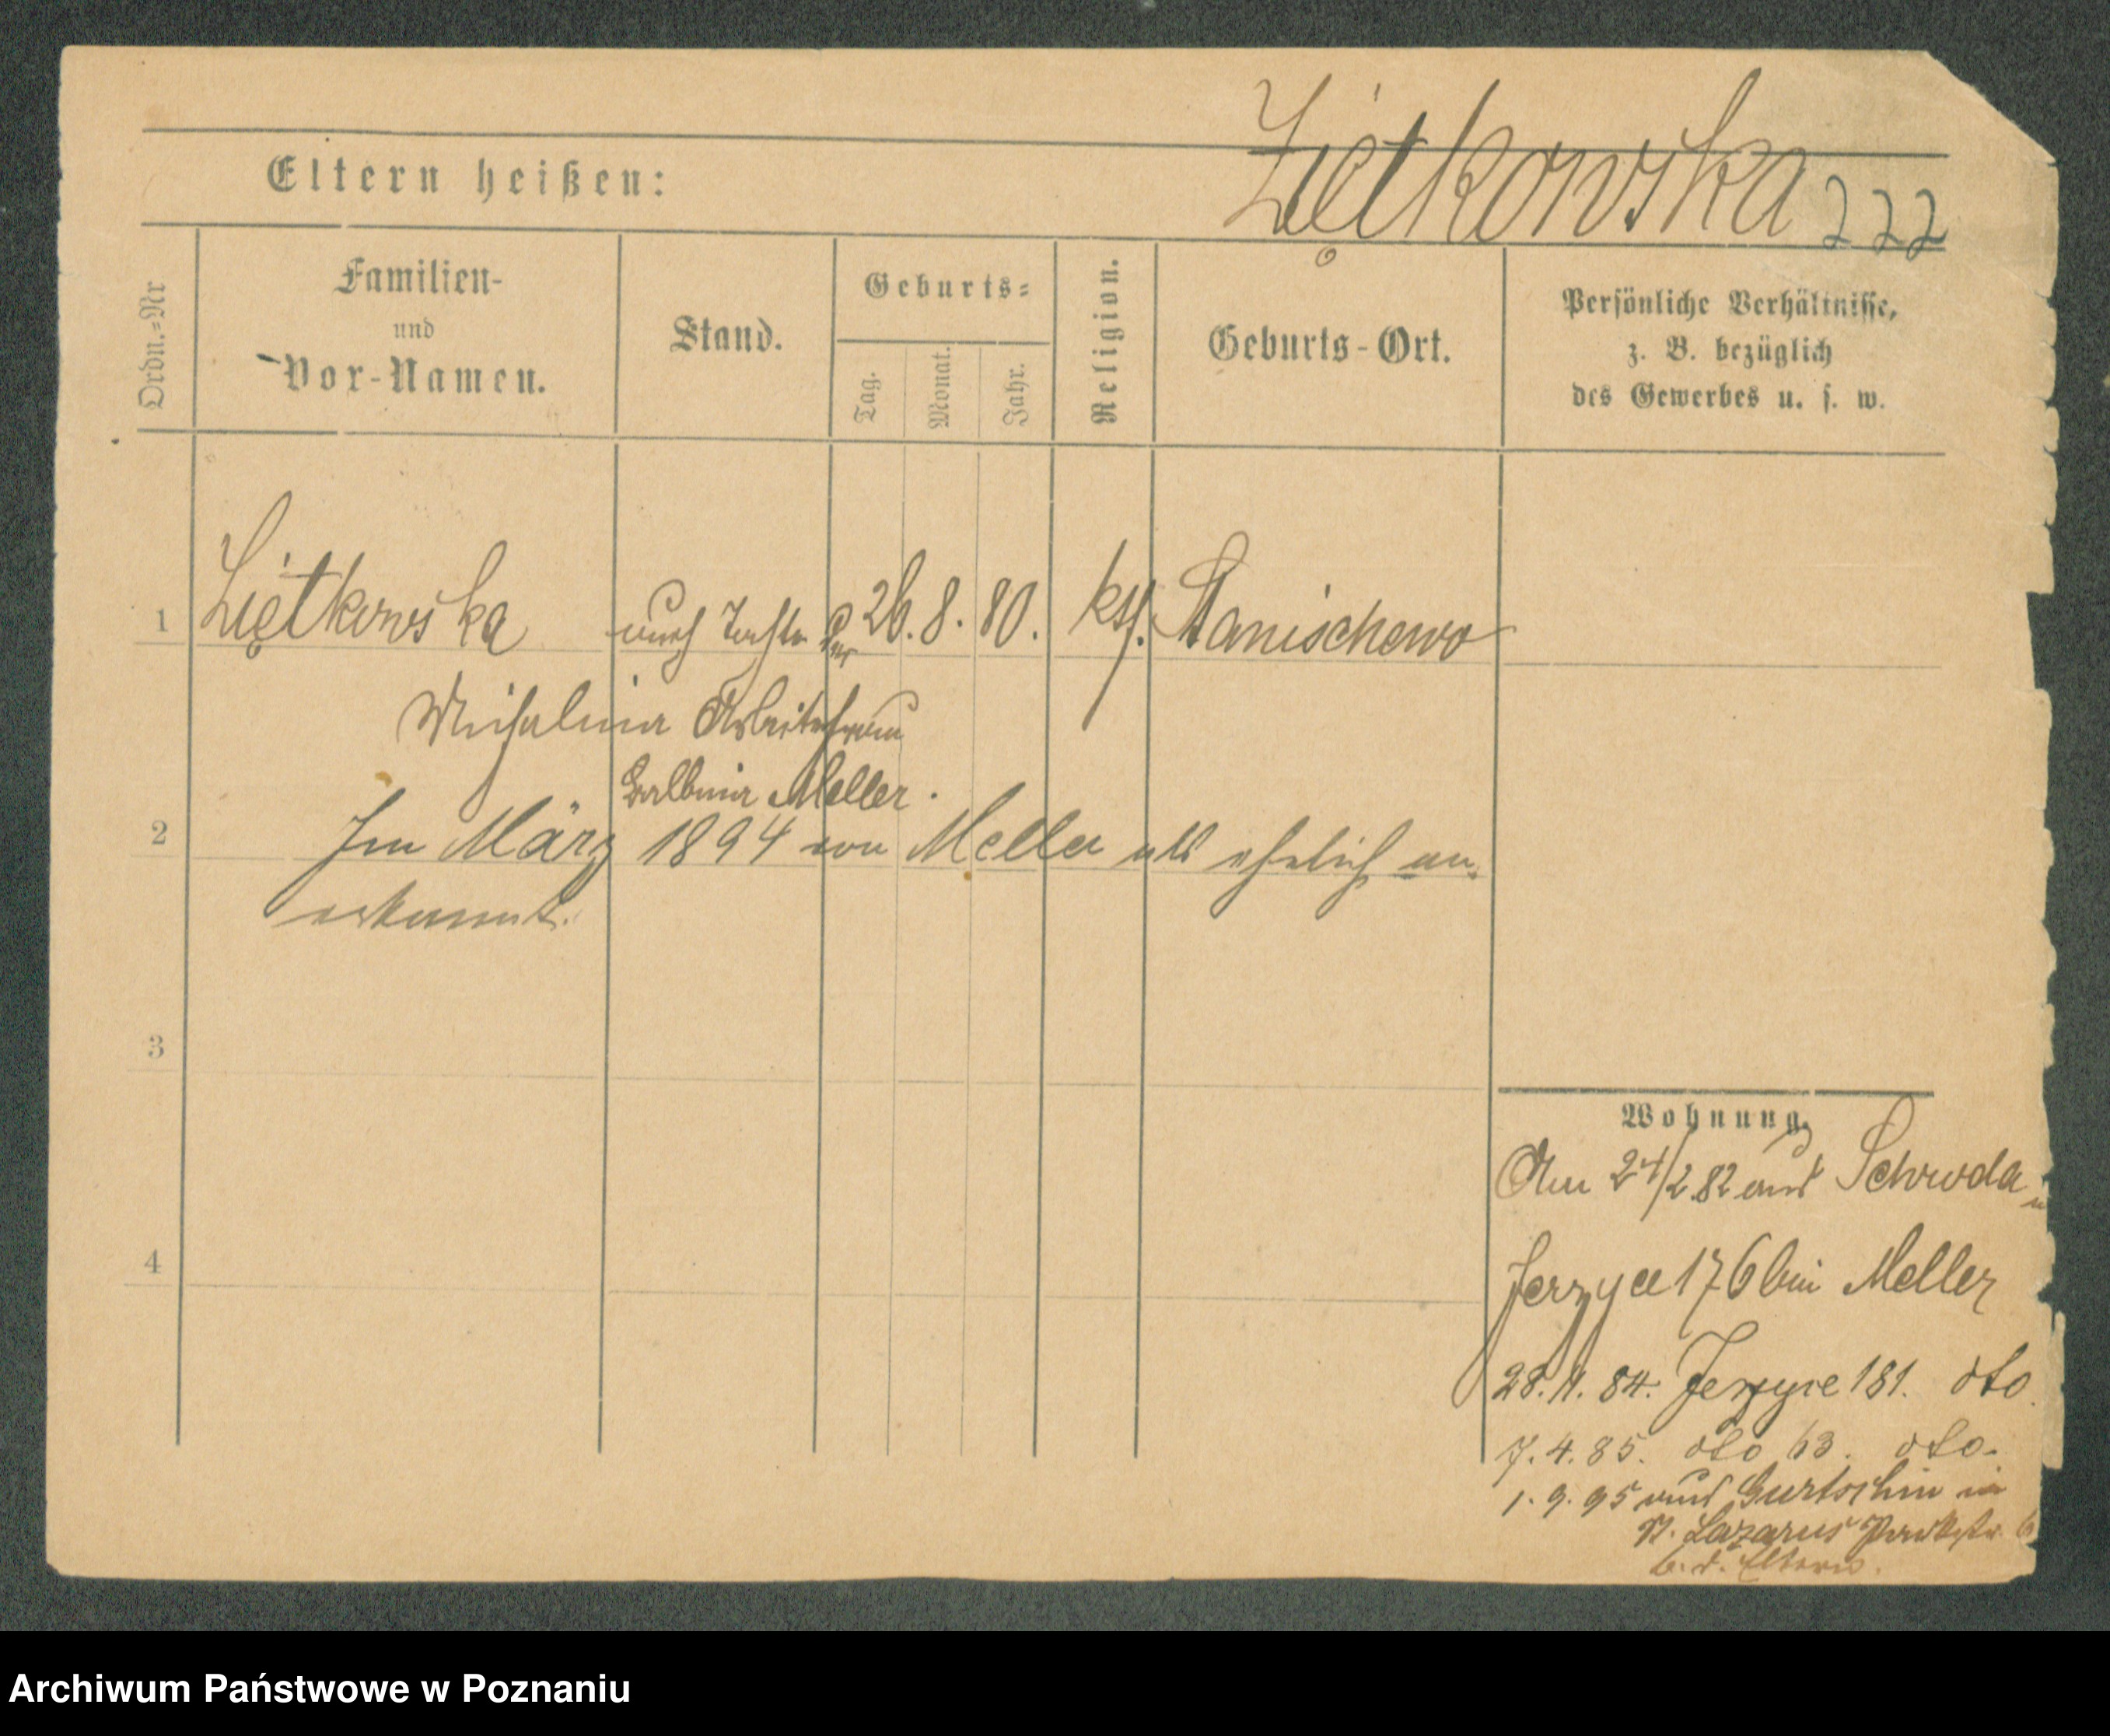 Ziętkowska 222
Eltern heißen:
Ordn.=Nr
Familien-
und
Vor-Namen.
Stand.
Geburts=
Tag.
Monat.
Jahr.
Religion.
Geburts-Ort.
Persönliche Verhältnisse,
z. B. bezüglich
des Gewerbes u. s. w.
1 Ziętkowska unehl Tochter der 26. 8. 80. kth. Stanischewo
Michalina Arbeitsfrau
Balbina Meller.
2 Im März 1894 von Meller als ehelich an-
erkannt.
3
4
Wohnung.
Am 24/2 82 aus Schroda in
Jerzyce 176 bei Meller
28. 11. 84. Jerzyce 181. dto
7. 4. 85. dto 63. dto.
1. 9. 95 aus Gurtschin in
St. Lazarus Parkstr. 6
b. d. Eltern.
Archiwum Państwowe w Poznaniu